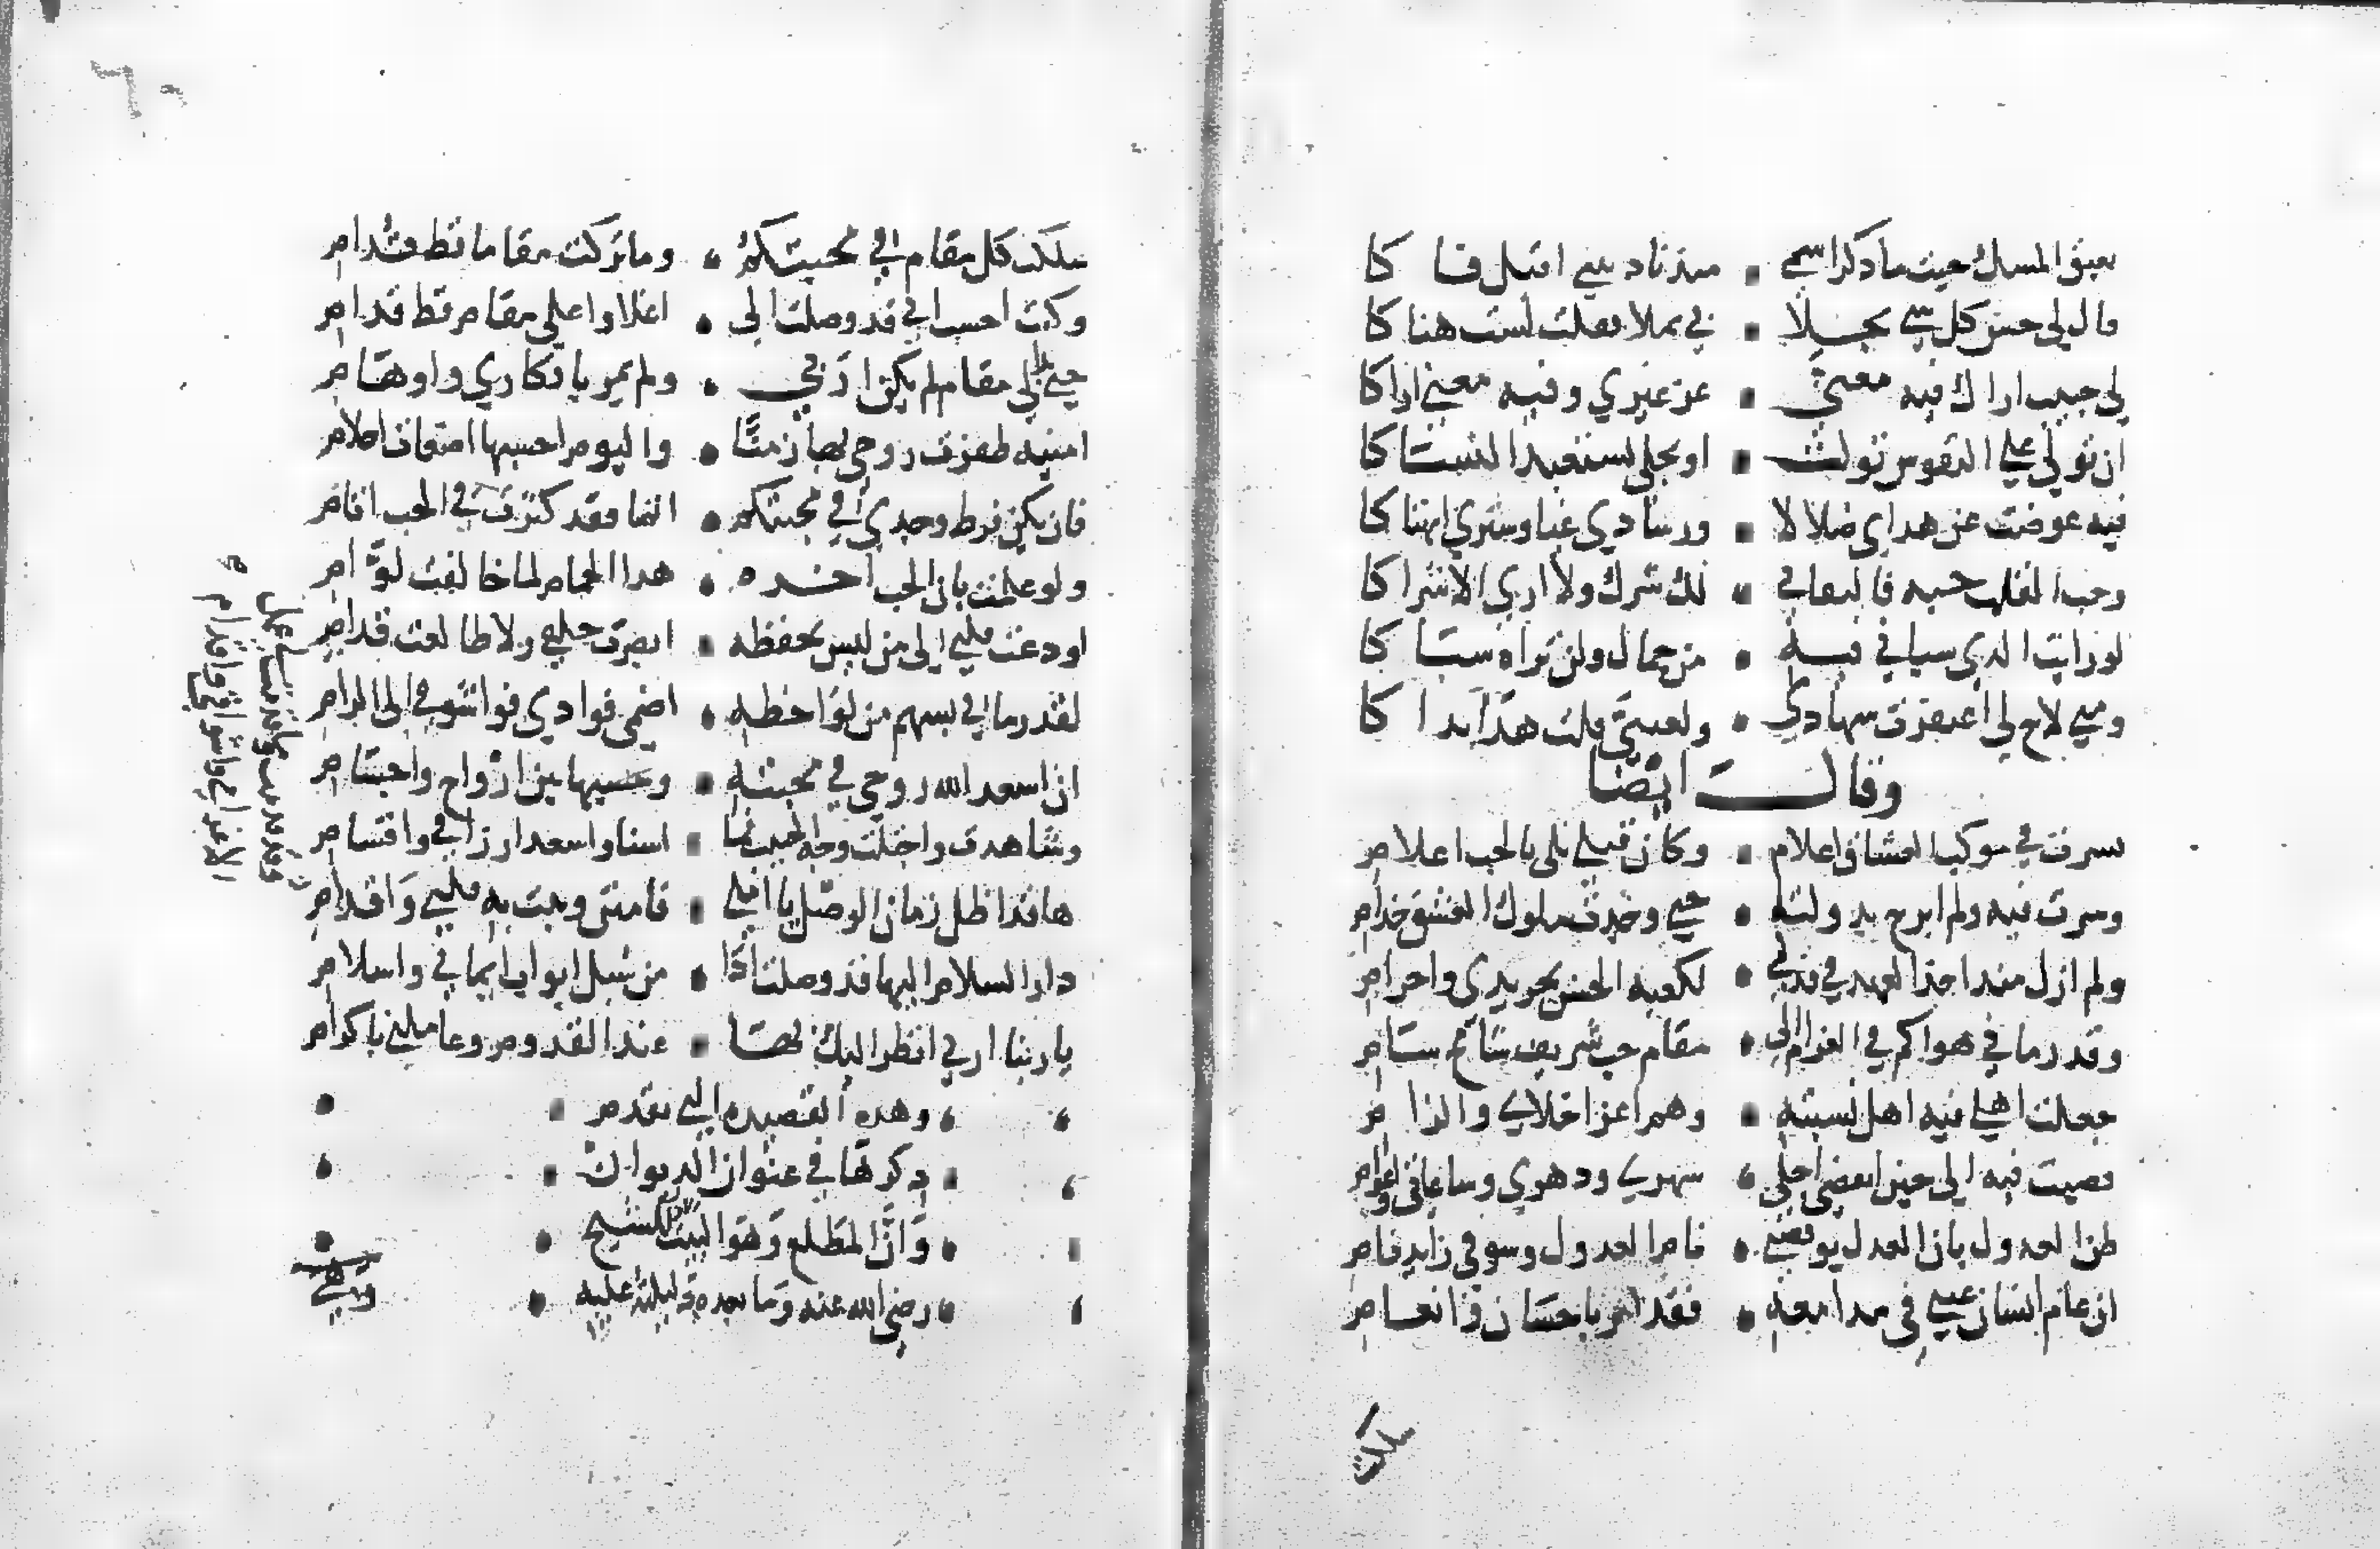 يعبق المسك حيث ما ذكر اسمي • منذ ناديتني اقبل فا كا
قال لي حسن كل شي تجلا • بي تملا فقلت لست هنا كا
لي حبيب اراك فيه معنى • عز غيري وفيه معنى اراكا
ان تولي على النفوس تولت • او تجلى تستعبد النسا كا
فيه عوضت عن هداي ضلالا لا • ورشادي غيا وستري انهتا كا
وحد القلب حبه فالتفاتي • لك شرك ولا اري الاشرا كا
لو رايت الذي سباني فيه • من جمال ولن تراه سبا كا
ومتي لاح لي اغتفرت سهادي • ولعيني قلت هذا بدا كا
وقال ايضا
نشرت في موكب العشاق اعلام • وكان قبلي بلي بالحب اعلام
وسرت فيه ولم ابرح بدولته • حتي وجدت ملوك العشق خدام
ولم ازل منذ اخذ العهد في قدمي • لكعبة الحسن تجريدي واحرام
وقد رماني هواكم في الغرام الى • مقام حب شريف شامخ سام
جهلت اهلي فيه اهل نسبته • وهم اعز اخلاي والزا م
قضيت فيه الى حين انقضي اجلي • شهري ودهري وساعاتي واعوام
ظن العذول بان العذل يوقفني • نام العذول وشوقي زايد نام
ان عام انسان عيني في مدامعه • فقد امد باحسان وانعام
سلكت كل مقام في محبتكم • وما تركت مقاما قط قدام
وكنت احسب اني قد وصلت الى • اعلا واعلى مقام قط قدام
حتى بدا لي مقام لم يكن اربي • ولم يمر بافكاري واوهام
امنيه ظفرت روحي بها زمنا • واليوم احسبها اضغاث احلام
فان يكن فرط وجدي في محبتكم • اثما فقد كثرت في الحب اثام
ولو علمت بان الحب اخره • هذا الحمام لما خالفت لوام
اودعت قلبي الى من ليس يحفظه • ابصرت خلفي ولا طالعت قدام
لقد رماني بسهم من لواحظه • اصمى فوادي فواشوقي الى الرام
ان اسعد الله روحي في محبته • وحسيها بين ارواح واجسام
وشاهدت واجتلت وجه الحبيب فما • اسنا واسعد ارزاقي واقسام
ها قد اظل زمان الوصل يا املي • فامنن وثبت به قلبي واقدام
دار السلام اليها قد وصلت اذا • من سبل ابواب ايماني واسلام
يا ربنا ارني انظر اليك بها • عند القدوم وعاملني باكرام
وهذه القصيده التي تقدم
ذكرها في عنوان الديوان
وان المطلع وهو البيت الاول للشيخ
رضي الله عنه وما بعده